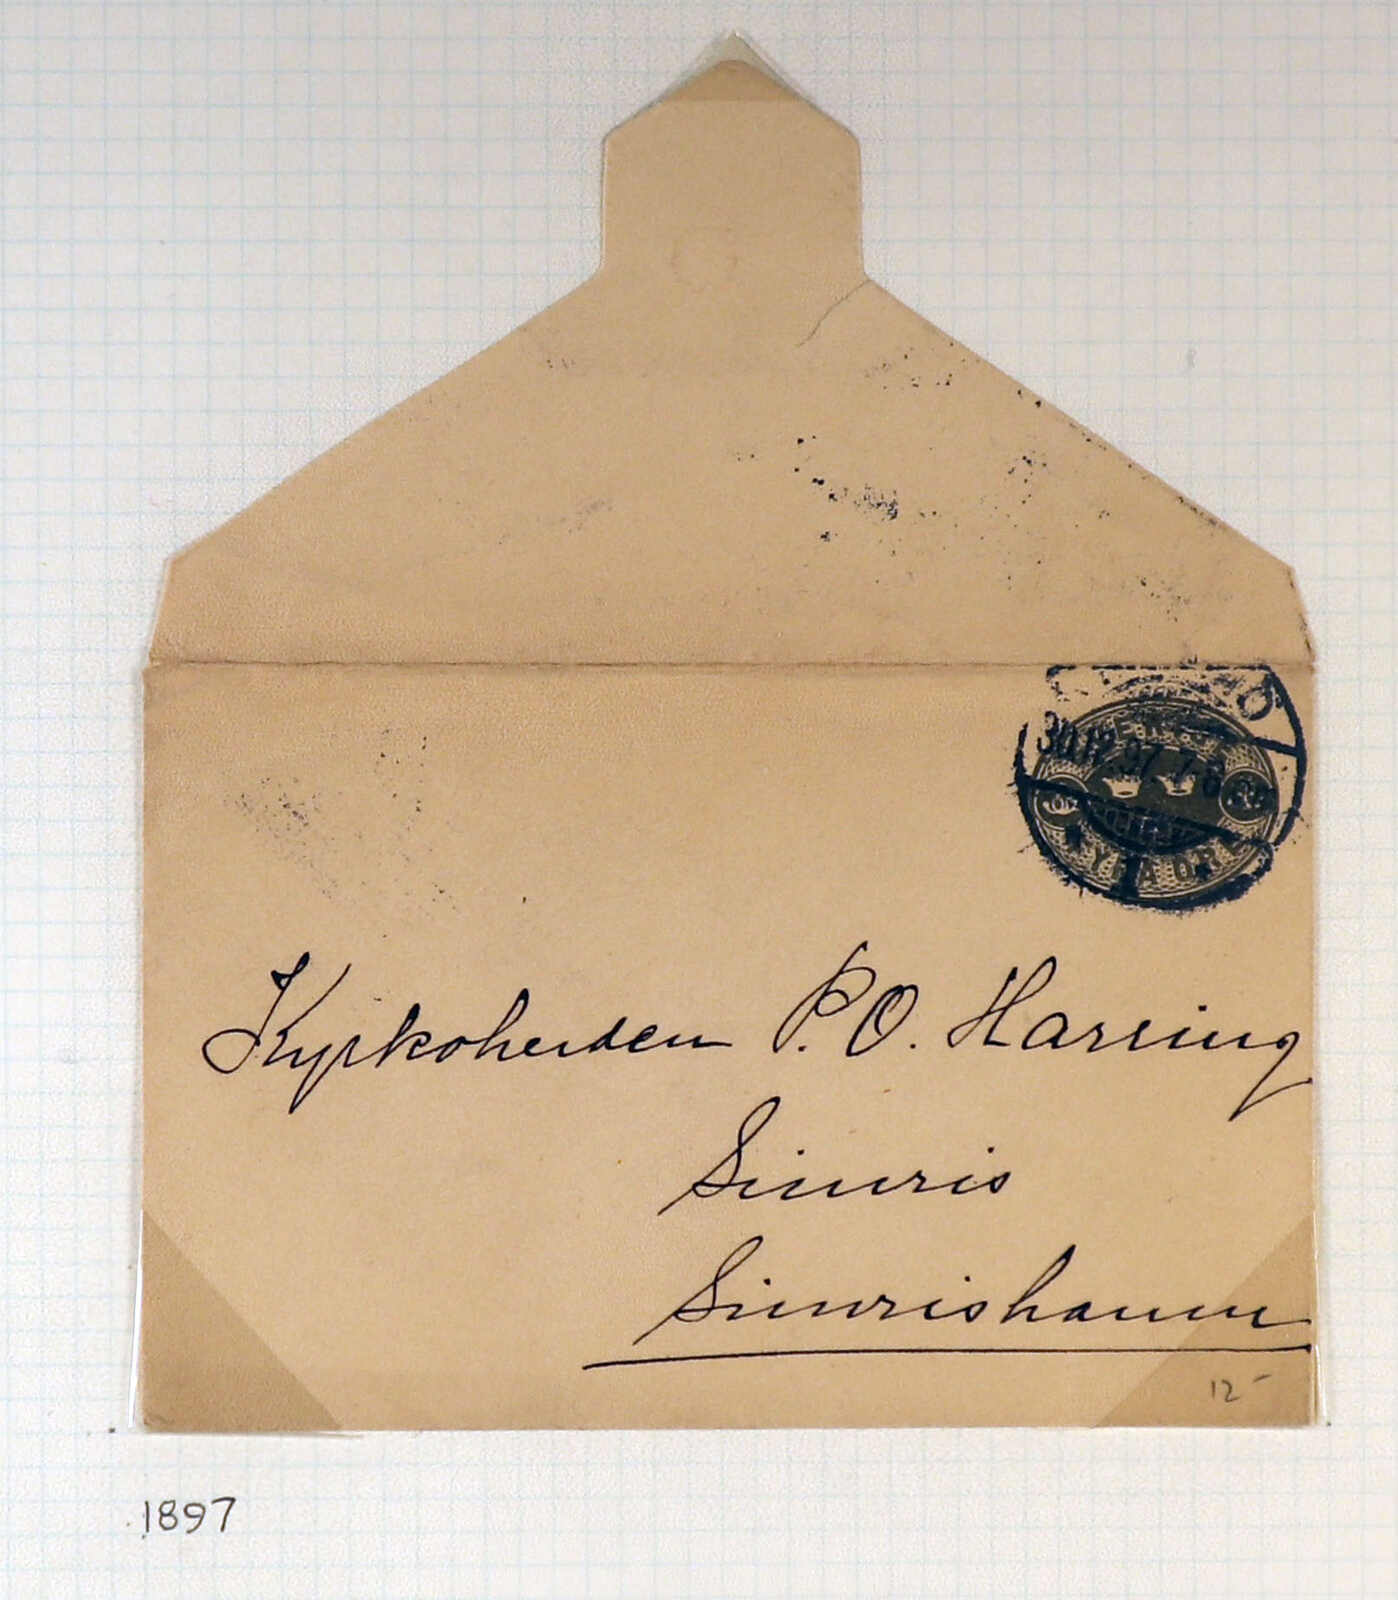 30.12.97 7-8
FYRA ÖRE
Kyrkoherden P. O. Harring
Simris
Simrishamn
12-
1897